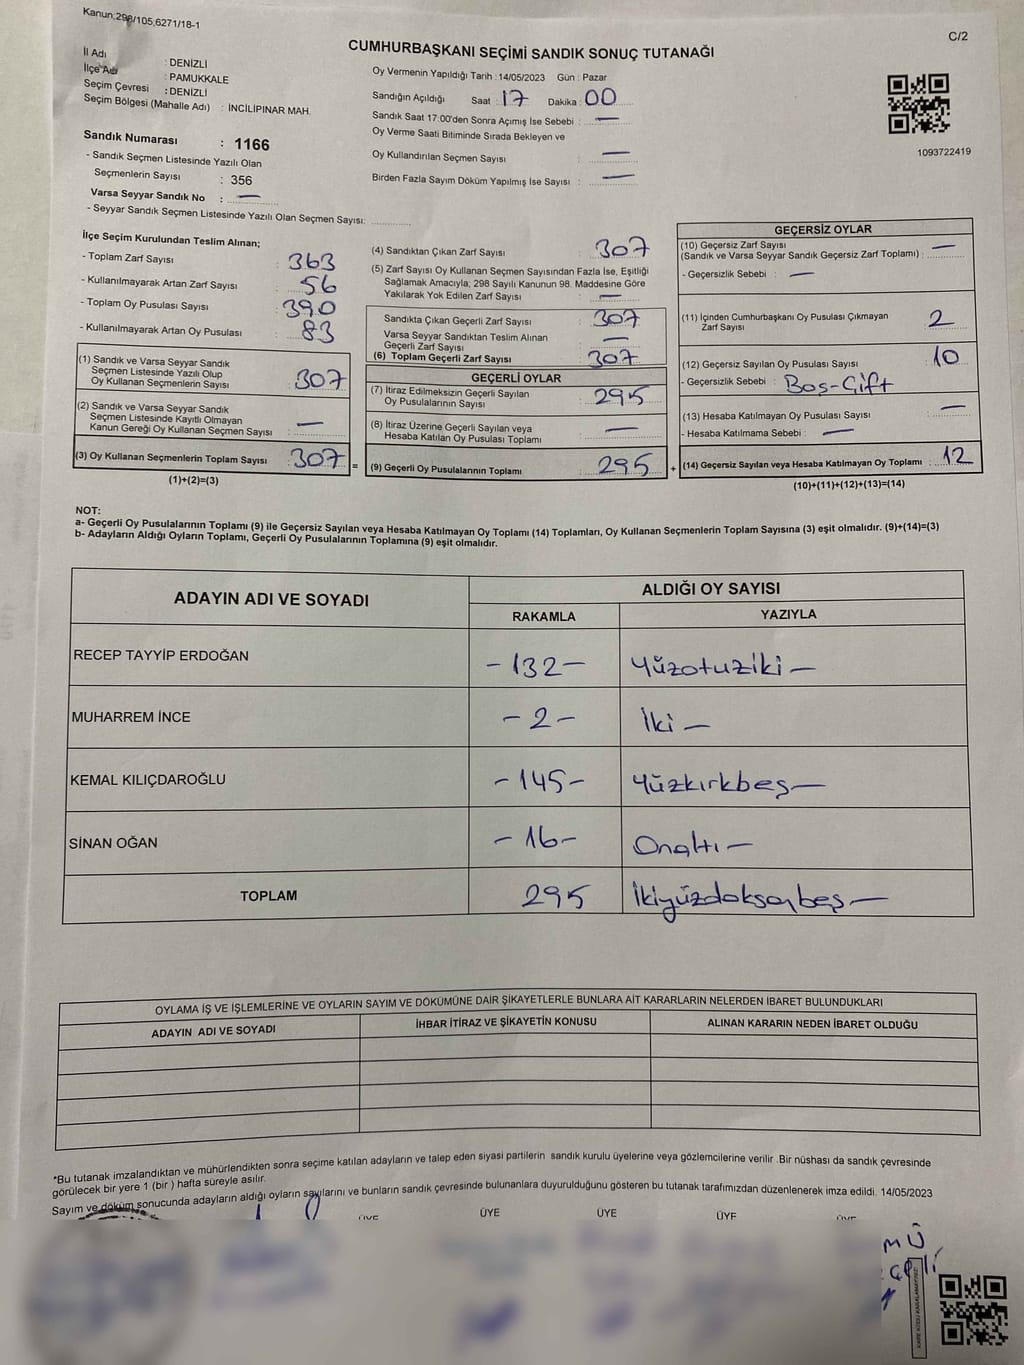 Kanun;298/105,6271/18-1
C/2
CUMHURBAŞKANI SEÇİMİ SANDIK SONUÇ TUTANAĞI
İl Adı : DENİZLİ
İlçe Adı : PAMUKKALE
Seçim Çevresi : DENİZLİ
Seçim Bölgesi (Mahalle Adı) : İNCİLİPINAR MAH.
Oy Vermenin Yapıldığı Tarih : 14/05/2023 Gün : Pazar
Sandığın Açıldığı Saat : 17 Dakika : 00
Sandık Saat 17:00'den Sonra Açımış İse Sebebi : —
Oy Verme Saati Bitiminde Sırada Bekleyen ve
Oy Kullandırılan Seçmen Sayısı : —
Birden Fazla Sayım Döküm Yapılmış İse Sayısı : —
1093722419
Sandık Numarası : 1166
- Sandık Seçmen Listesinde Yazılı Olan
Seçmenlerin Sayısı : 356
Varsa Seyyar Sandık No : —
- Seyyar Sandık Seçmen Listesinde Yazılı Olan Seçmen Sayısı:
İlçe Seçim Kurulundan Teslim Alınan;
- Toplam Zarf Sayısı : 363
- Kullanılmayarak Artan Zarf Sayısı : 56
- Toplam Oy Pusulası Sayısı : 390
- Kullanılmayarak Artan Oy Pusulası : 83
(1) Sandık ve Varsa Seyyar Sandık
Seçmen Listesinde Yazılı Olup
Oy Kullanan Seçmenlerin Sayısı : 307
(2) Sandık ve Varsa Seyyar Sandık
Seçmen Listesinde Kayıtlı Olmayan
Kanun Gereği Oy Kullanan Seçmen Sayısı : —
(3) Oy Kullanan Seçmenlerin Toplam Sayısı : 307 =
(1)+(2)=(3)
(4) Sandıktan Çıkan Zarf Sayısı : 307
(5) Zarf Sayısı Oy Kullanan Seçmen Sayısından Fazla İse, Eşitliği
Sağlamak Amacıyla, 298 Sayılı Kanunun 98. Maddesine Göre
Yakılarak Yok Edilen Zarf Sayısı : —
Sandıkta Çıkan Geçerli Zarf Sayısı : 307
Varsa Seyyar Sandıktan Teslim Alınan
Geçerli Zarf Sayısı : —
(6) Toplam Geçerli Zarf Sayısı : 307
GEÇERLİ OYLAR
(7) İtiraz Edilmeksizin Geçerli Sayılan
Oy Pusulalarının Sayısı : 295
(8) İtiraz Üzerine Geçerli Sayılan veya
Hesaba Katılan Oy Pusulası Toplamı : —
(9) Geçerli Oy Pusulalarının Toplamı : 295 +
GEÇERSİZ OYLAR
(10) Geçersiz Zarf Sayısı
(Sandık ve Varsa Seyyar Sandık Geçersiz Zarf Toplamı) : —
- Geçersizlik Sebebi : —
(11) İçinden Cumhurbaşkanı Oy Pusulası Çıkmayan
Zarf Sayısı : 2
(12) Geçersiz Sayılan Oy Pusulası Sayısı : 10
- Geçersizlik Sebebi : Boş-Çift
(13) Hesaba Katılmayan Oy Pusulası Sayısı : —
- Hesaba Katılmama Sebebi : —
(14) Geçersiz Sayılan veya Hesaba Katılmayan Oy Toplamı : 12
(10)+(11)+(12)+(13)=(14)
NOT:
a- Geçerli Oy Pusulalarının Toplamı (9) ile Geçersiz Sayılan veya Hesaba Katılmayan Oy Toplamı (14) Toplamları, Oy Kullanan Seçmenlerin Toplam Sayısına (3) eşit olmalıdır. (9)+(14)=(3)
b- Adayların Aldığı Oyların Toplamı, Geçerli Oy Pusulalarının Toplamına (9) eşit olmalıdır.
ADAYIN ADI VE SOYADI
ALDIĞI OY SAYISI
RAKAMLA YAZIYLA
RECEP TAYYİP ERDOĞAN -132- Yüzotuziki —
MUHARREM İNCE -2- İki —
KEMAL KILIÇDAROĞLU -145- Yüzkırkbeş—
SİNAN OĞAN -16- Onaltı —
TOPLAM 295 İkiyüzdoksanbeş—
OYLAMA İŞ VE İŞLEMLERİNE VE OYLARIN SAYIM VE DÖKÜMÜNE DAİR ŞİKAYETLERLE BUNLARA AİT KARARLARIN NELERDEN İBARET BULUNDUKLARI
ADAYIN ADI VE SOYADI İHBAR İTİRAZ VE ŞİKAYETİN KONUSU ALINAN KARARIN NEDEN İBARET OLDUĞU
*Bu tutanak imzalandıktan ve mühürlendikten sonra seçime katılan adayların ve talep eden siyasi partilerin sandık kurulu üyelerine veya gözlemcilerine verilir .Bir nüshası da sandık çevresinde
görülecek bir yere 1 (bir ) hafta süreyle asılır.
Sayım ve döküm sonucunda adayların aldığı oyların sayılarını ve bunların sandık çevresinde bulunanlara duyurulduğunu gösteren bu tutanak tarafımızdan düzenlenerek imza edildi. 14/05/2023
ÜYE ÜYE ÜYE ÜYE ÜYE
MÜ